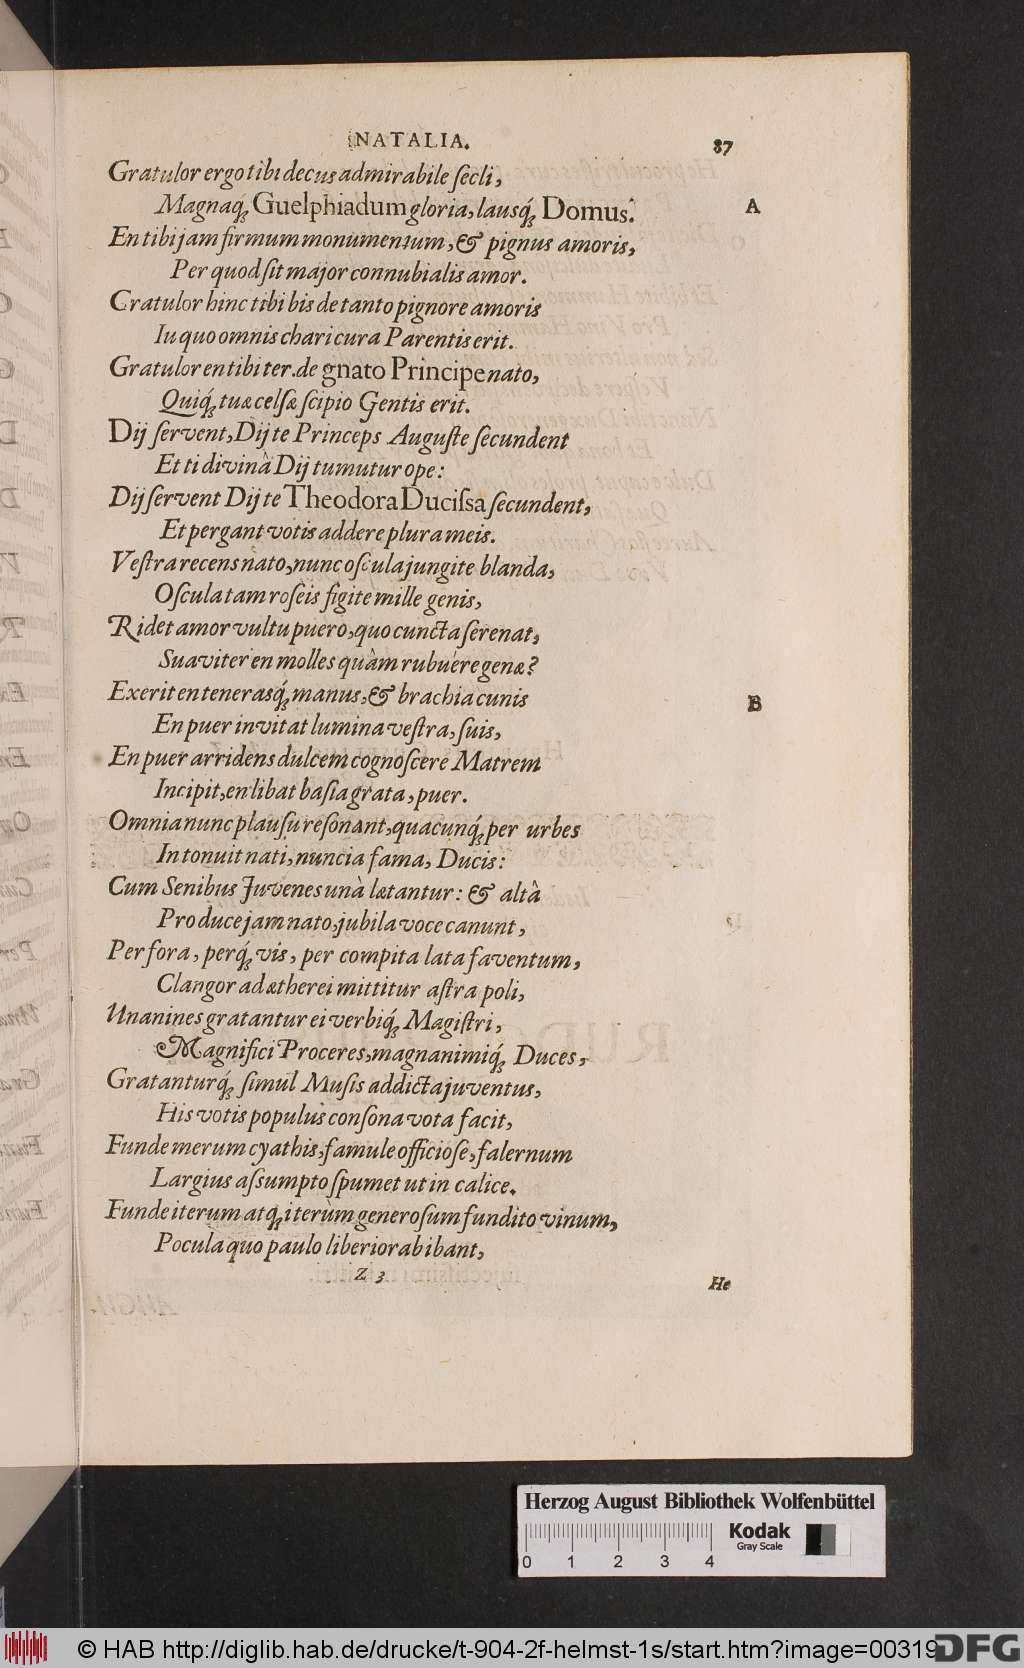 NATALIA. 87
Gratulor ergo tibi decus admirabile ſecli,
Magnaq́; Guelphiadum gloria, lausq́; Domus. A
En tibi jam firmum monumentum, & pignus amoris,
Per quod ſit major connubialis amor.
Gratulor hinc tibi bis de tanto pignore amoris
Iu quo omnis chari cura Parentis erit.
Gratulor en tibi ter. de gnato Principe nato,
Quiq́; tuæ celſæ ſcipio Gentis erit.
Dij ſervent, Dij te Princeps Auguſte ſecundent
Et ti divinâ Dij tumutur ope:
Dij ſervent Dij te Theodora Duciſsa ſecundent,
Et pergant votis addere plura meis.
Veſtra recens nato, nunc oſcula jungite blanda,
Oſcula tam roſeis figite mille genis,
Ridet amor vultu puero, quo cuncta ſerenat,
Suaviter en molles quàm rubuêre genæ?
Exerit en tenerasq́; manus, & brachia cunis B
En puer invitat lumina veſtra, ſuis,
En puer arridens dulcem cognoſcere Matrem
Incipit, en libat baſia grata, puer.
Omnia nunc plauſu reſonant, quacunq́; per urbes
Intonuit nati, nuncia fama, Ducis:
Cum Senibus Juvenes unà lætantur: & altâ
Pro duce jam nato, jubila voce canunt,
Per fora, perq́; vis, per compita lata faventum,
Clangor ad ætherei mittitur aſtra poli,
Unanines gratantur ei verbiq́; Magiſtri,
Magnifici Proceres, magnanimiq́; Duces,
Gratanturq́; ſimul Muſis addicta juventus,
His votis populus conſona vota facit,
Funde merum cyathis, famule officioſe, falernum
Largius aſsumpto ſpumet ut in calice.
Funde iterum atq́; iterùm generoſum fundito vinum,
Pocula quo paulo liberiora bibant,
Z 3 He
Herzog August Bibliothek Wolfenbüttel
0 1 2 3 4
Kodak
Gray Scale
© HAB http://diglib.hab.de/drucke/t-904-2f-helmst-1s/start.htm?image=00319
DFG